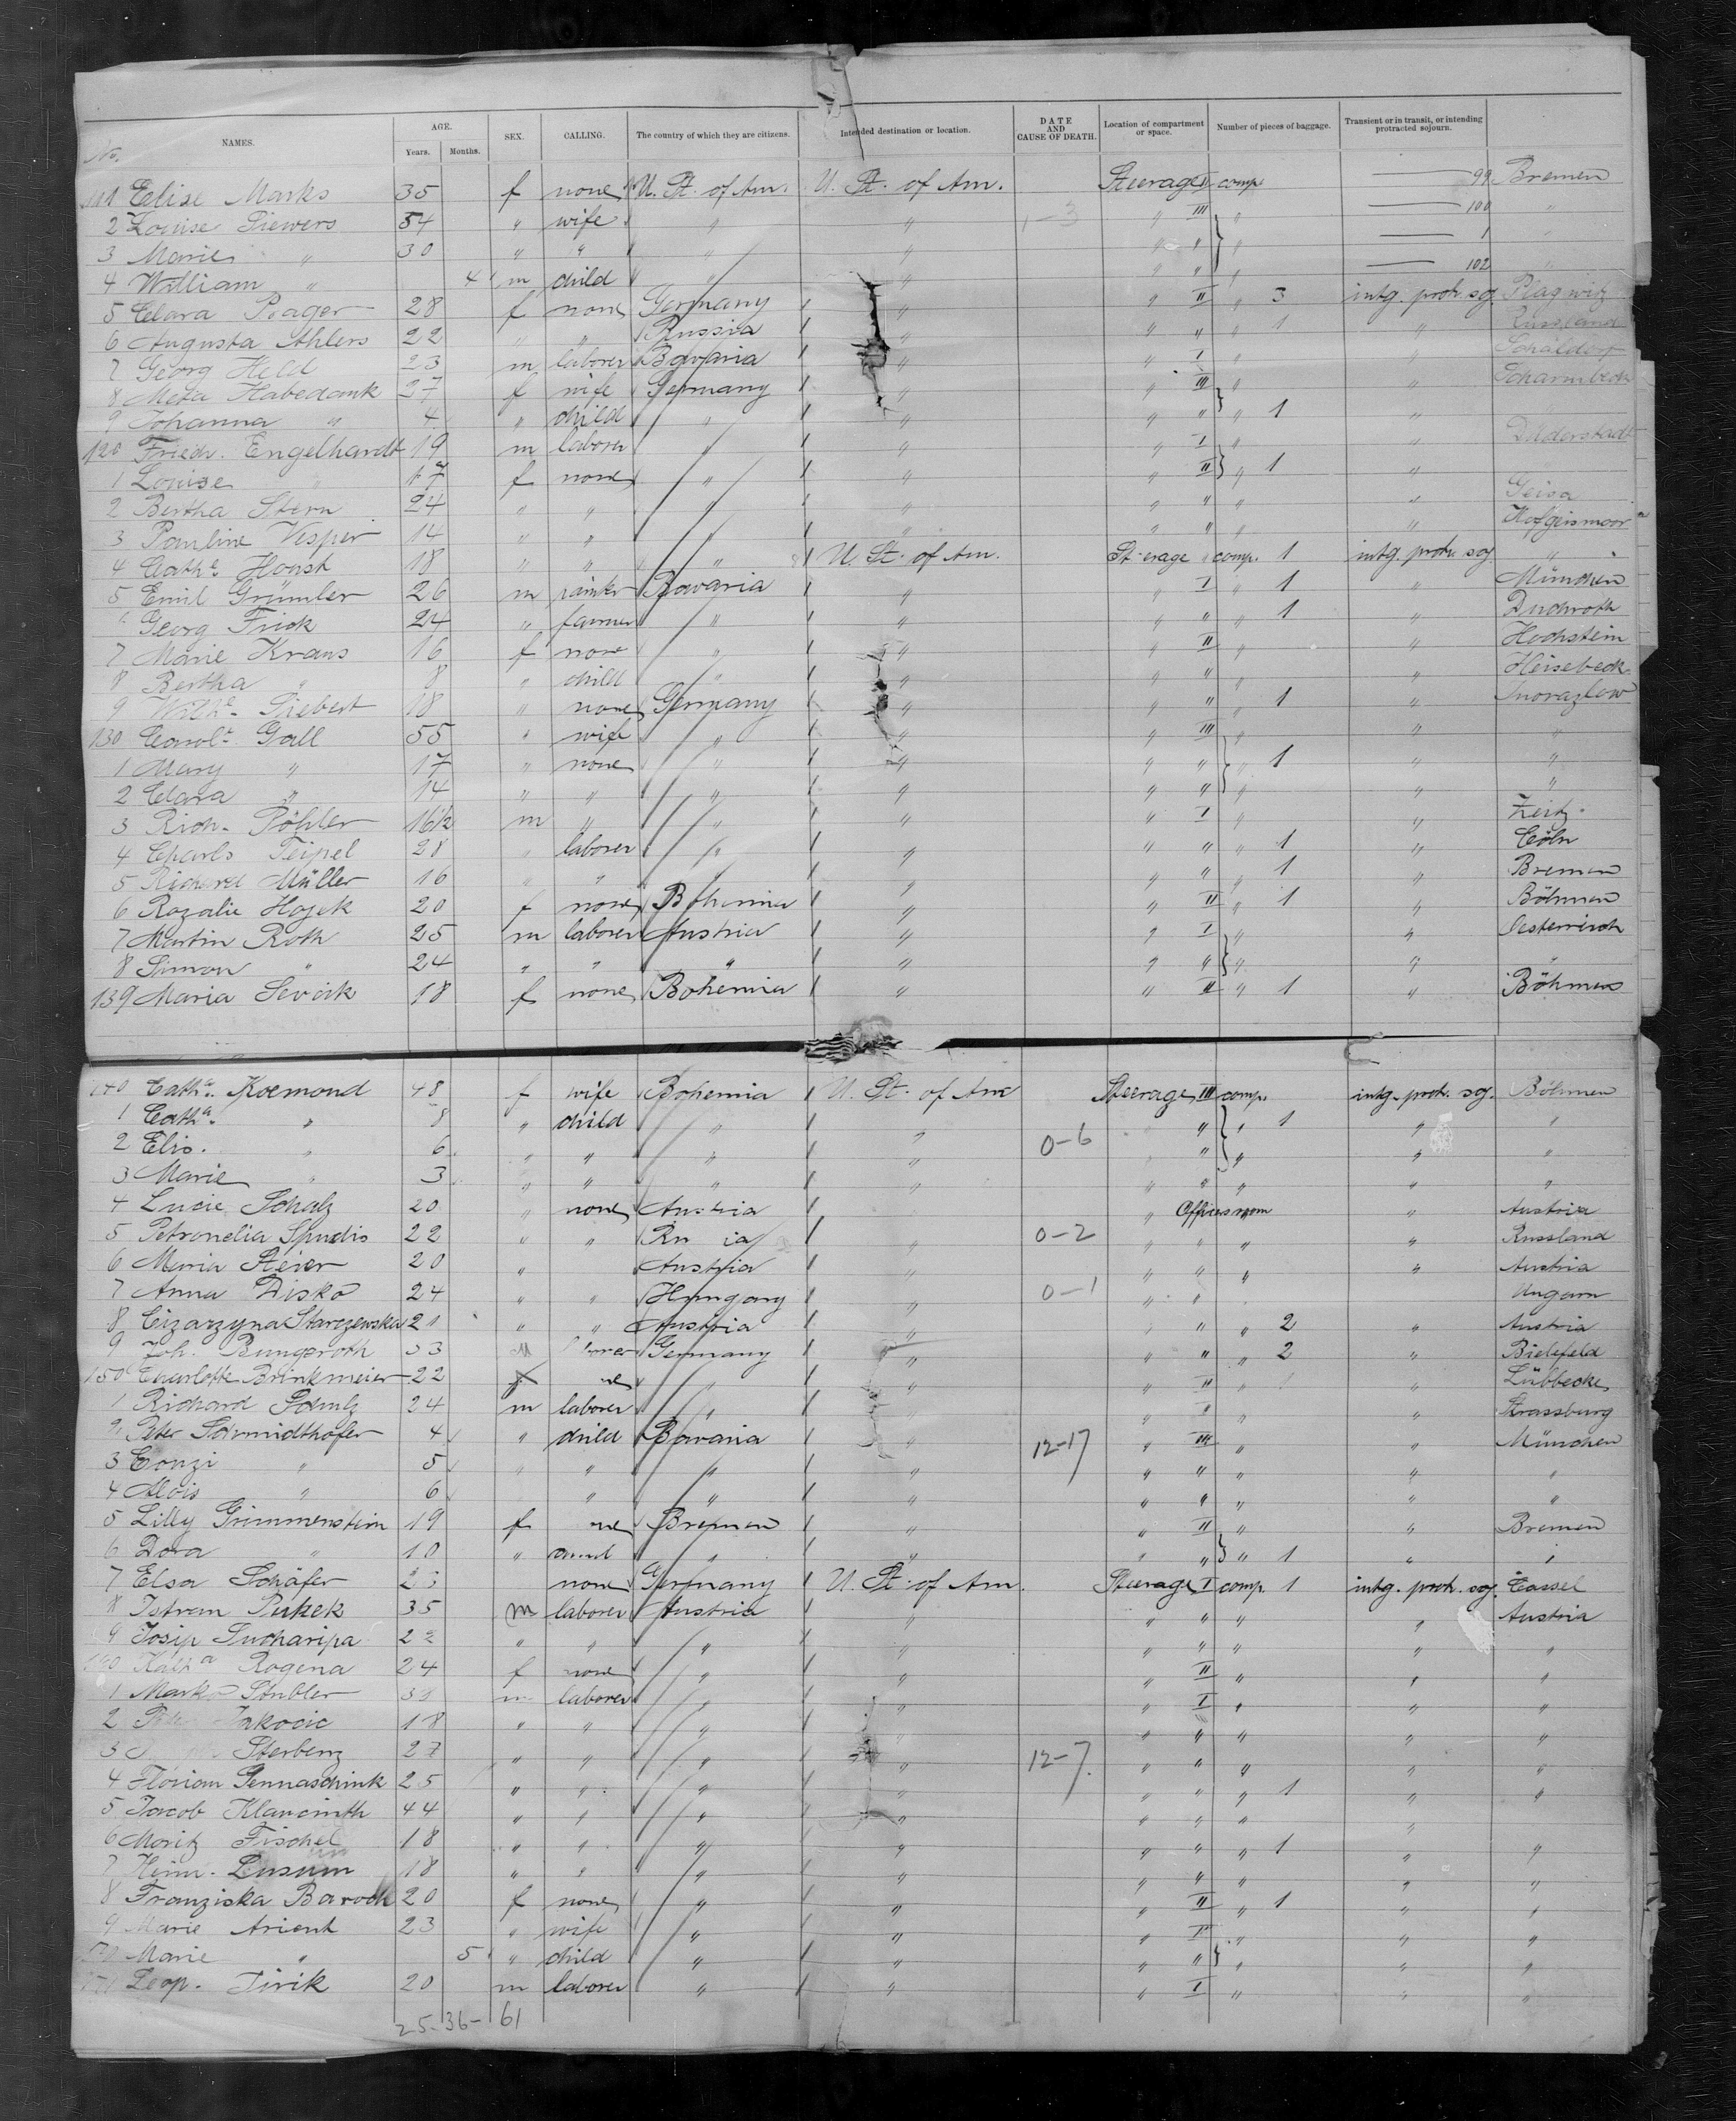 NAMES. AGE. SEX. CALLING. The country of which they are citizens. Intended destination or location. DATE AND CAUSE OF DEATH. Location of compartment or space. Number of pieces of baggage. Transient or in transit, or intending protracted sojourn.
No. Years. Months.
111 Elise Marks 35 f none U. St. of Am. U. St. of Am. Steerage II comp. 99 Bremen
2 Louise Siewers 54 " wife " " " III " 100 "
3 Marie " 30 " " " " " " " 1 "
4 William " 4 m child " " " " " 102 "
5 Clara Prager 28 f none Germany " " II " 3 intg. protr. soj. Plagwitz
6 Augusta Ahlers 22 " " Russia " " " " 1 " Russland
7 Georg Held 23 m laborer Bavaria " " I " "
8 Meta Habedank 27 f wife Germany " " III " " Scharmbeck
9 Johanna " 4 " child " " " " " 1 "
120 Friedr. Engelhardt 19 m laborer " " " I " " Duderstadt
1 Louise " 17 f none " " " II " 1 "
2 Bertha Stern 24 " " " " " " " " Geisa
3 Pauline Vesper 14 " " " " " " " " Hofgeismar
4 Cathe. Honst 18 " " " U. St. of Am. Steerage " comp. 1 intg. protr. soj. "
5 Emil Grümler 26 m painter Bavaria " " I " 1 " München
6 Georg Frick 24 " farmer " " " " " 1 " Duchroth
7 Marie Kraus 16 f none " " " II " " Hochstein
8 Bertha " 8 " child " " " " " " Heisebeck
9 Wilhe. Siebert 18 " none Germany " " " " 1 " Inorazlow
130 Carolt. Gall 55 " wife " " " III " " "
1 Mary " 17 " none " " " " " 1 " "
2 Clara " 14 " " " " " " " "
3 Rich. Pöhler 16 1/2 m " " " " I " " Zeitz.
4 Charls Teipel 28 " laborer " " " " " 1 " Cöln
5 Richard Müller 16 " " " " " " " 1 " Bremen
6 Rozalie Hajek 20 f none Bohemia " " II " 1 " Böhmen
7 Martin Roth 25 m laborer Austria " " I " " Oesterreich
8 Simon " 24 " " " " " " " " "
139 Maria Sevcik 18 f none Bohemia " " II " 1 " Böhmen
140 Catha. Kremond 48 f wife Bohemia U. St. of Am Steerage III comp. intg. protr. soj. Böhmen
1 Catha. " 8 " child " " " " 1 " "
2 Elis. " 6 " " " " 0-6 " " " "
3 Marie " 3 " " " " " " " " "
4 Lucie Schalz 20 " none Austria " " Officers room " Austria
5 Petronelia Spudis 22 " " Ru ia " 0-2 " " " " Russland
6 Maria Steier 20 " Austria " " " " " Austria
7 Anna Disko 24 " " Hungary " 0-1 " " Ungarn
8 Cizarzyna Starczewska 21 " " Austria " " " " 2 " Austria
9 Joh. Bungeroth 33 m Germany " " " " 2 " Bielefeld
150 Charlotte Brinkmeier 22 f " " " II " 1 " Lübbecke
1 Richard Schulz 24 m laborer " " " I " " Strassburg
2 Peter Schmidthofer 4 " child Bavaria " 12-17 " III " " München
3 Conzi " 5 " " " " " " " " "
4 Alois " 6 " " " " " " " "
5 Lilly Grimmenstein 19 f Bremen " " II " Bremen
6 Dora " 10 " " " " " " 1 " "
7 Elsa Schäfer 23 none Germany U. St. of Am. Steerage I comp. 1 intg. protr. soj. Cassel
8 Istram Pukek 35 m laborer Austria " " " " " Austria
9 Josip Sucharipa 22 " " " " " " " " "
160 Katha Rogena 24 f none " " " II " " "
1 Marko Stubler m laborer " " " I " " "
2 Jakocic 18 " " " " " " " " "
3 Sterbenz 27 " " " " 12-7 " " " " "
4 Florian Pennaschink 25 " " " " " " " 1 " "
5 Jacob Klancinth 44 " " " " " " " "
6 Moritz Fischel 18 " " " " " " " 1 " "
7 Heinr. Lusum 18 " " " " " " " " "
8 Franziska Baroch 20 f none " " " II " 1 " "
9 Marie Arient 23 " wife " " " III " " "
170 Marie " 5 " child " " " " " " "
171 Leop. Jirik 20 m laborer " " " I " " "
25-36-61